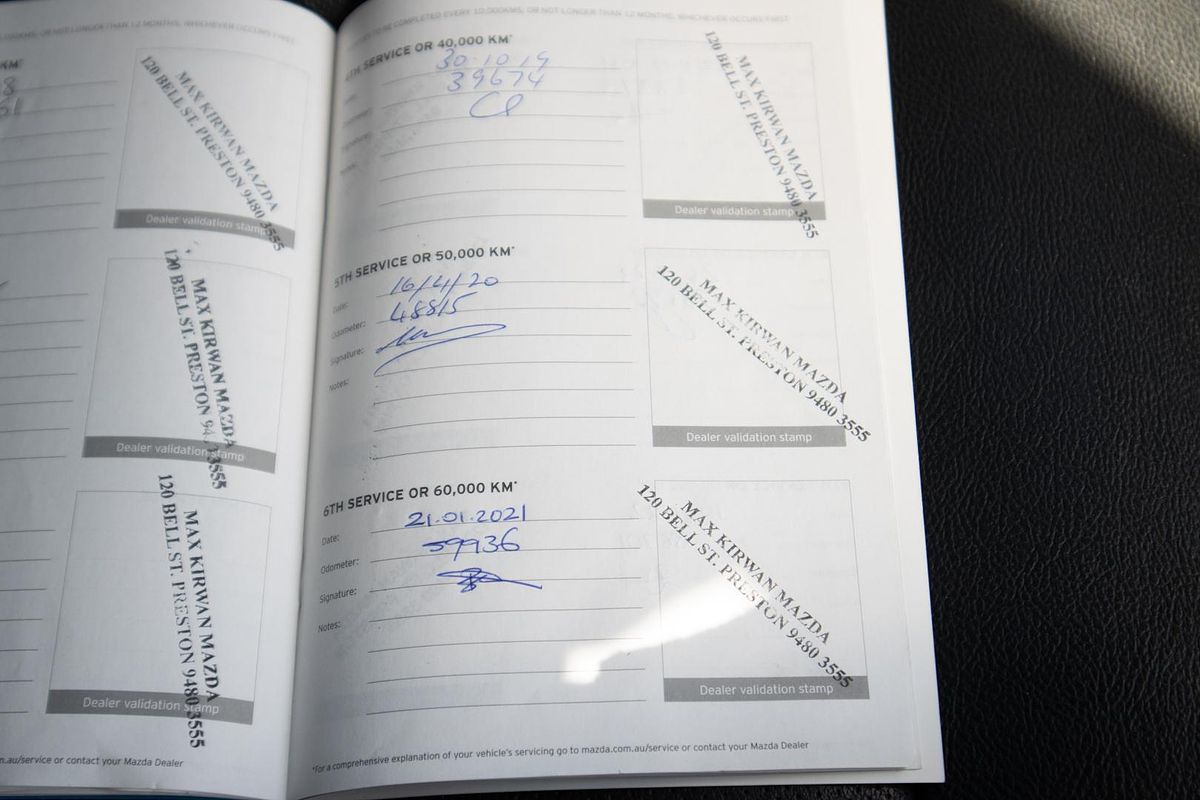 ,000KMS, OR NOT LONGER THAN 12 MONTHS, WHICHEVER OCCURS FIRST
KM*
8
51
MAX KIRWAN MAZDA
120 BELL ST. PRESTON 9480 3555
Dealer validation stamp
MAX KIRWAN MAZDA
120 BELL ST. PRESTON 94 3555
Dealer validation stamp
MAX KIRWAN MAZDA
120 BELL ST. PRESTON 9480 3555
Dealer validation stamp
.au/service or contact your Mazda Dealer
TO BE COMPLETED EVERY 10,000KMS, OR NOT LONGER THAN 12 MONTHS, WHICHEVER OCCURS FIRST
4TH SERVICE OR 40,000 KM*
30-10-19
39674
MAX KIRWAN MAZDA
120 BELL ST. PRESTON 9480 3555
Dealer validation stamp
5TH SERVICE OR 50,000 KM*
Date: 16/4/20
Odometer: 48815
Signature:
Notes:
MAX KIRWAN MAZDA
120 BELL ST. PRESTON 9480 3555
Dealer validation stamp
6TH SERVICE OR 60,000 KM*
Date: 21.01.2021
Odometer: 59936
Signature:
Notes:
MAX KIRWAN MAZDA
120 BELL ST. PRESTON 9480 3555
Dealer validation stamp
*For a comprehensive explanation of your vehicle's servicing go to mazda.com.au/service or contact your Mazda Dealer